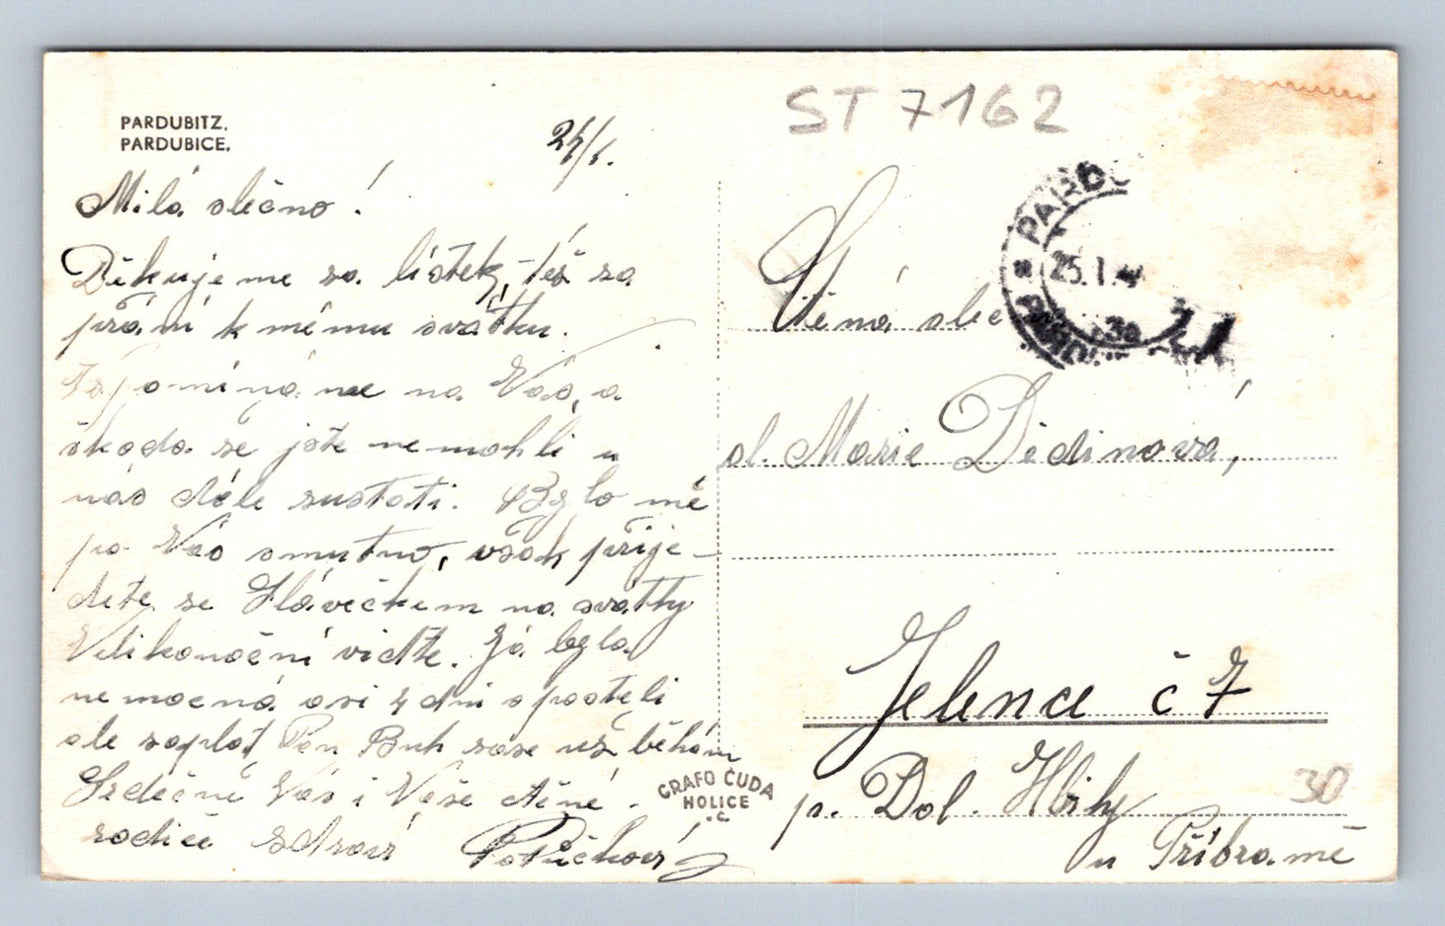 PARDUBITZ.
PARDUBICE.
ST 7162
Milá slečno!
Děkujeme za lístek, též za
přání k mému svátku.
Vzpomínáme na Vás, a
škoda že jste nemohli u
nás déle zustati. Bylo mě
po Vás smutno, však přije-
dete se Hláváčkem na svátky
Velikonoční viďte. Já byla
nemocná asi 4 dni v posteli
ale zaplať Pan Buh zase už běhám
Srdečně Vás i Vaše ctěné
rodiče zdraví
GRAFO ČUDA
HOLICE
25.I.
Ctěná
sl. Marie Dědinová,
Jelence č 7
p. Dol. Hbity
u Příbramě
30